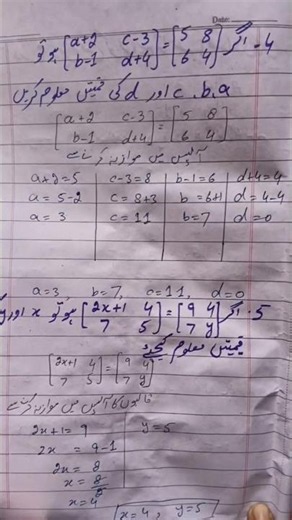 Date:
4- اگر [a+2 c-3 b-1 d+4] = [5 8 6 4] ہو تو
a، b، c اور d کی قیمتیں معلوم کریں
[a+2 c-3 b-1 d+4] = [5 8 6 4]
آپس میں موازنہ کرنے سے
a+2=5 c-3=8 b-1=6 d+4=4
a=5-2 c=8+3 b=6+1 d=4-4
a=3 c=11 b=7 d=0
a=3 b=7, c=11, d=0
5. اگر [2x+1 4 7 5] = [9 4 7 y] ہو تو x اور y
قیمتیں معلوم کیجئے
[2x+1 4 7 5] = [9 4 7 y]
آپس میں موازنہ کرنے سے
2x+1=9 y=5
2x = 9-1
2x = 8
x = 8/2
x=4
x=4, y=5